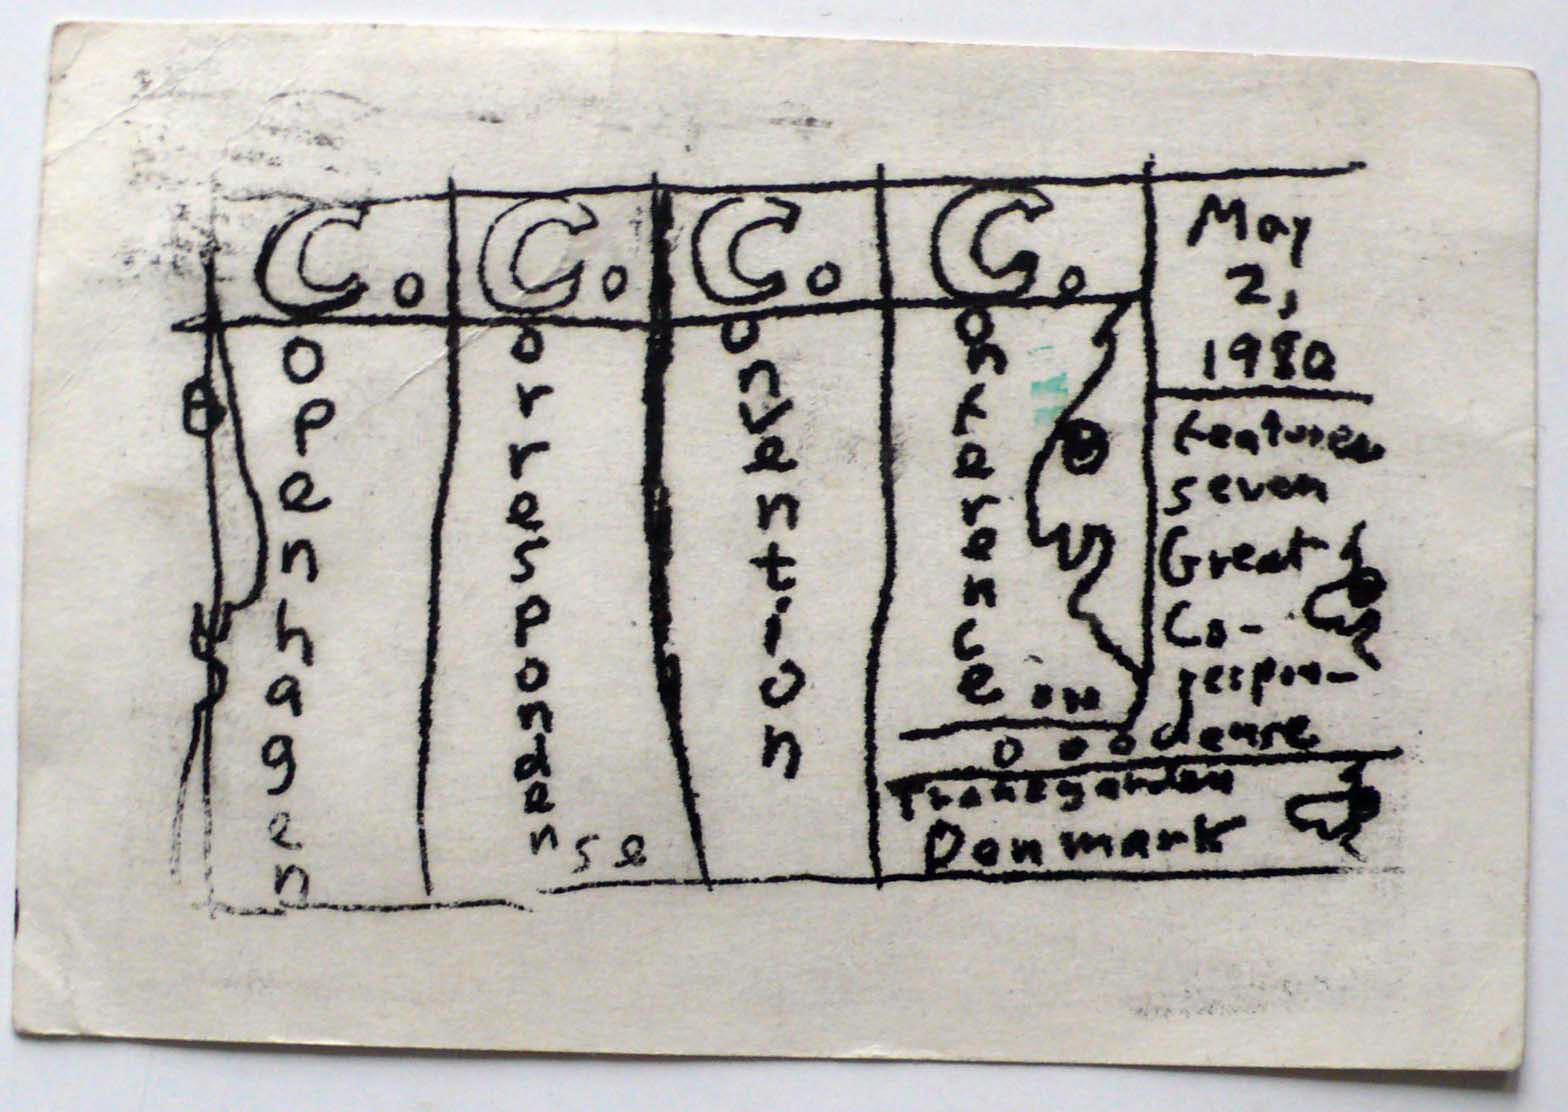 C. openhagen
C. orrespondense
C. onvention
C. onference on
May
2,
1980
features
seven
Great
Co-
respon-
dense
Tranegarden
Denmark